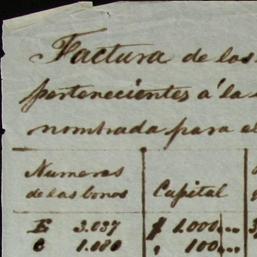 Factura de los
pertenecientes á la
nombrada para el
Numeros
de las bonos
Capital
E 3.037 $ 1.000
C 1.080 " 100